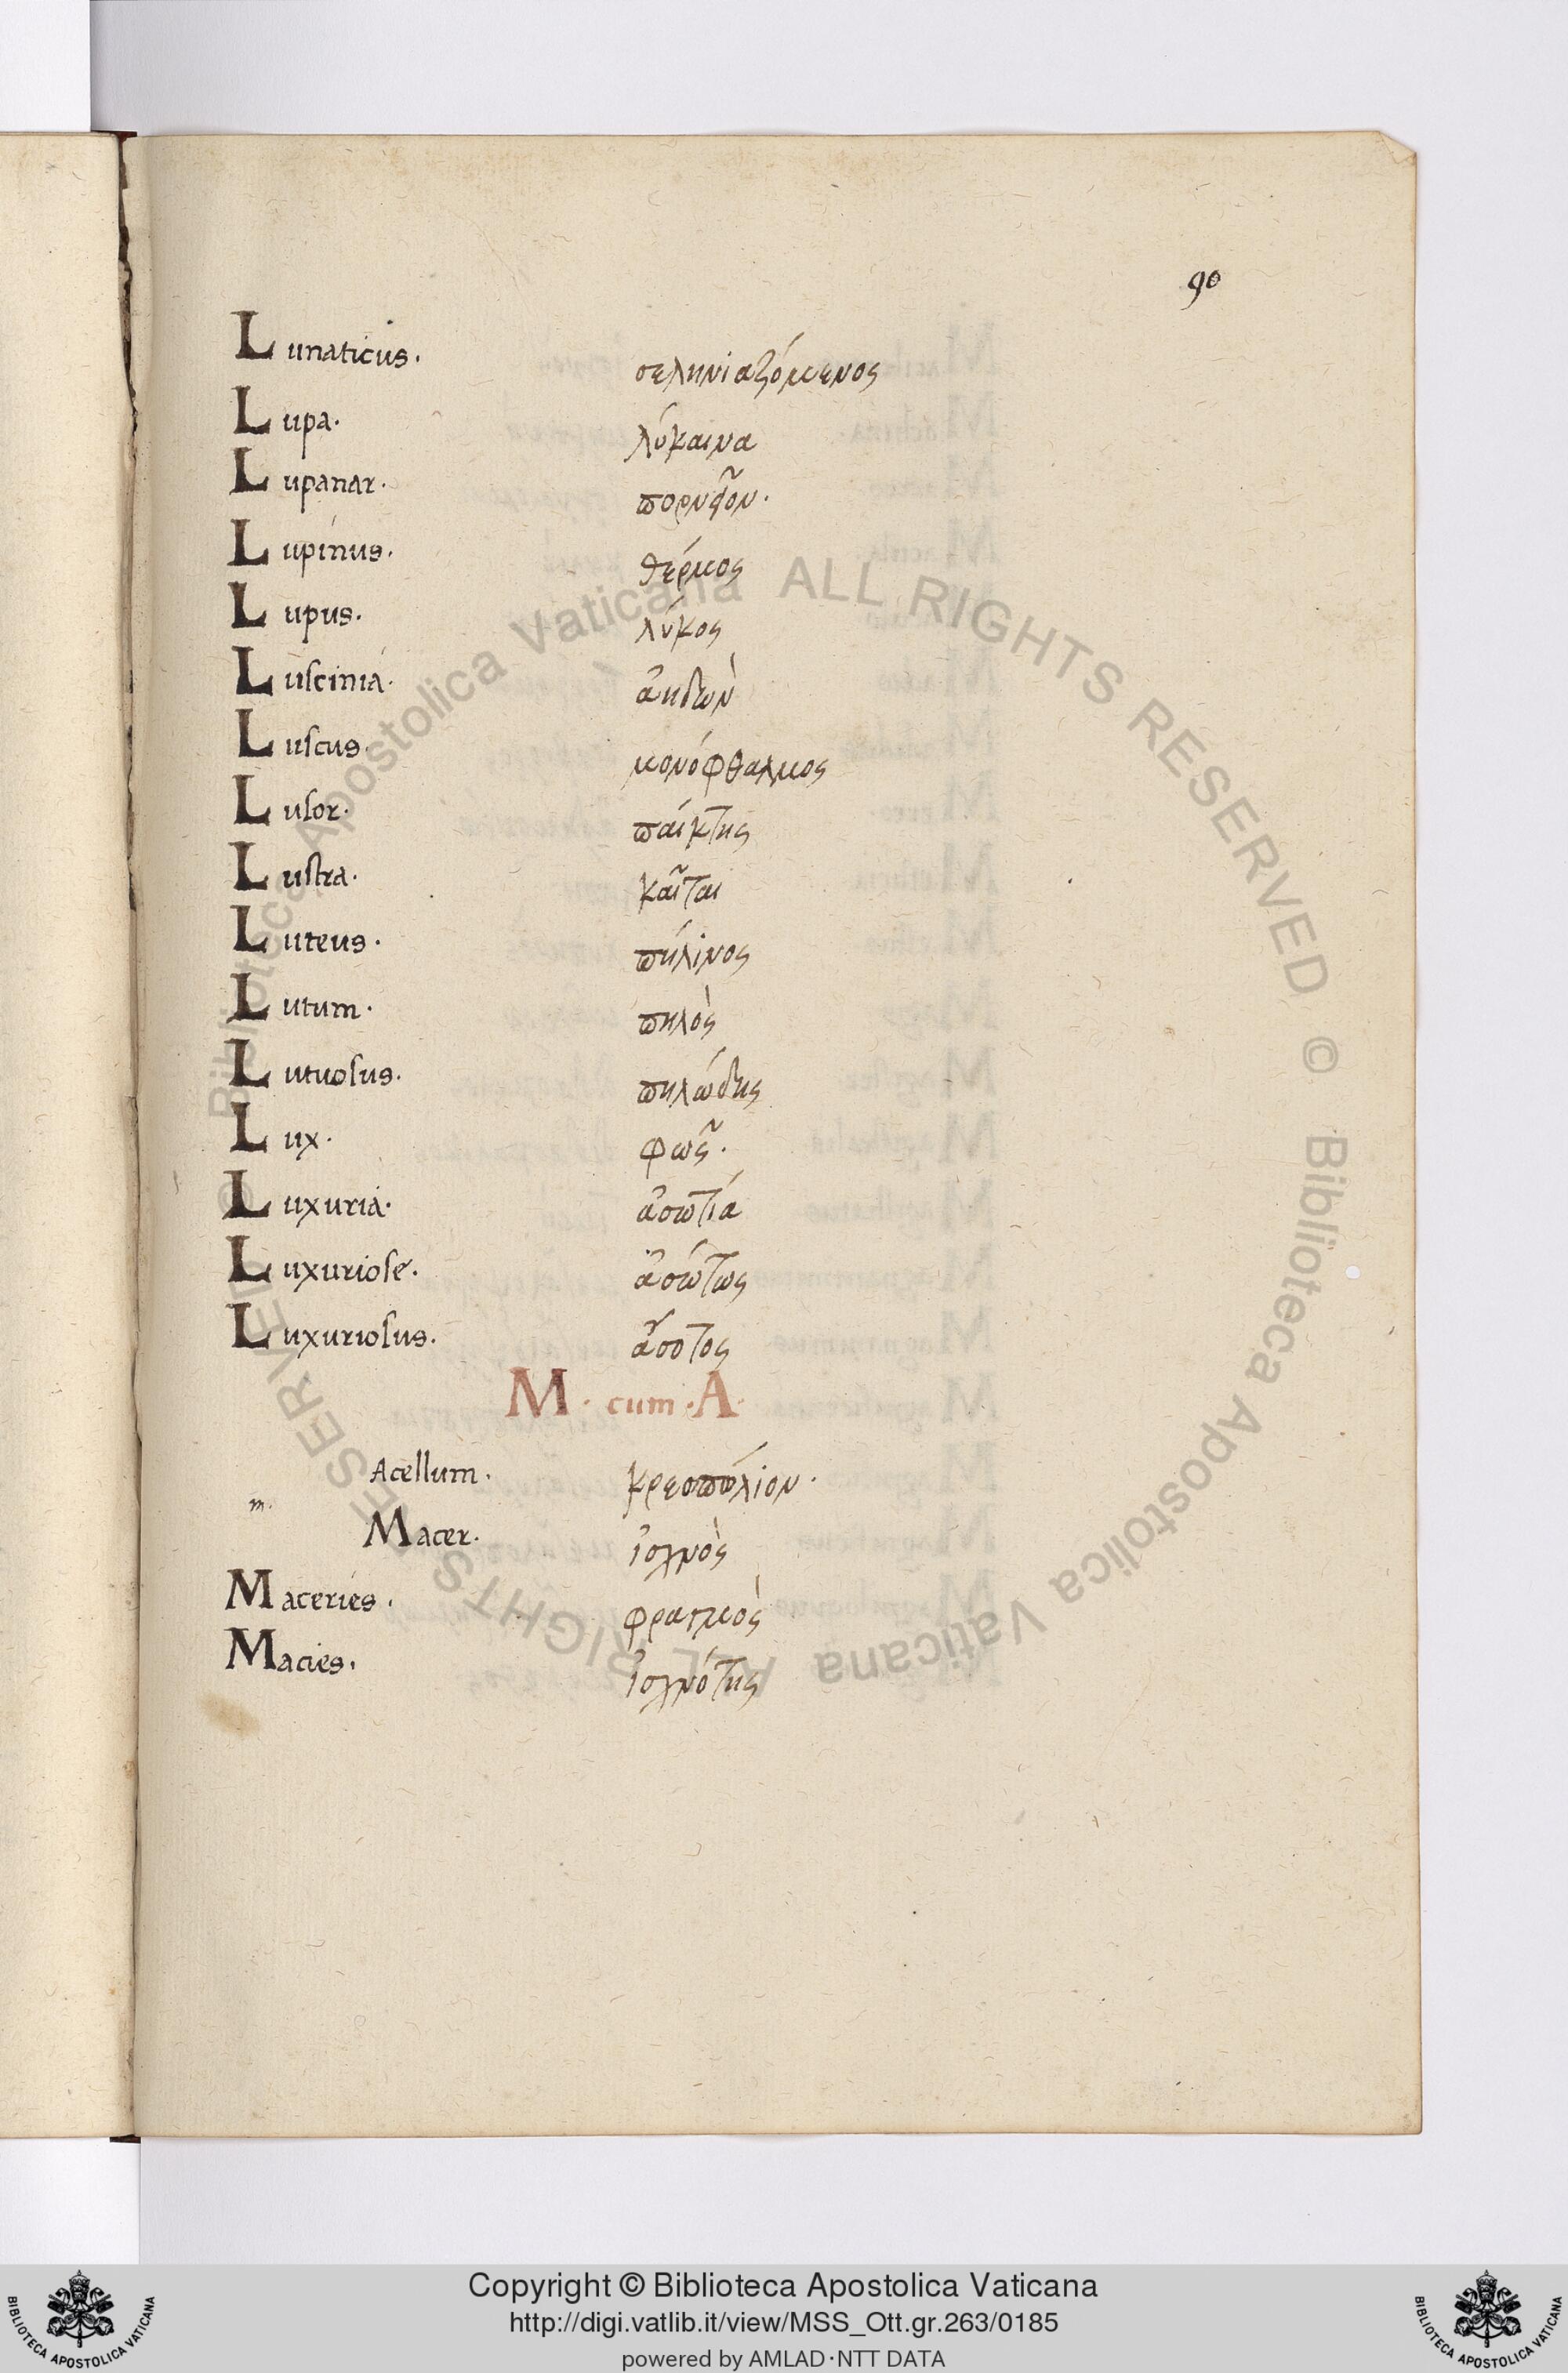 90
Lunaticus. σεληνιαζόμενος
Lupa. λύκαινα
Lupanar. πορνεῖον.
Lupinus. θέρμος
Lupus. λύκος
Luscinia. ἀηδὼν
Luscus. μονόφθαλμος
Lusor. παίκτης
Lustra. καῖται
Luteus. πήλινος
Lutum. πηλὸς
Lutuosus. πηλώδης
Lux. φῶς.
Luxuria. ἀσωτία
Luxuriose. ἀσώτως
Luxuriosus. ἄσοτος
M. cum. A.
Acellum. κρεοπώλιον.
m.
Macer. ἰσχνὸς
Maceries. φραγμὸς
Macies. ἰσχνότης
Copyright © Biblioteca Apostolica Vaticana
http://digi.vatlib.it/view/MSS_Ott.gr.263/0185
powered by AMLAD·NTT DATA
BIBLIOTECA APOSTOLICA VATICANA
BIBLIOTECA APOSTOLICA VATICANA
© Biblioteca Apostolica Vaticana ALL RIGHTS RESERVED © Biblioteca Apostolica Vaticana ALL RIGHTS RESERVED